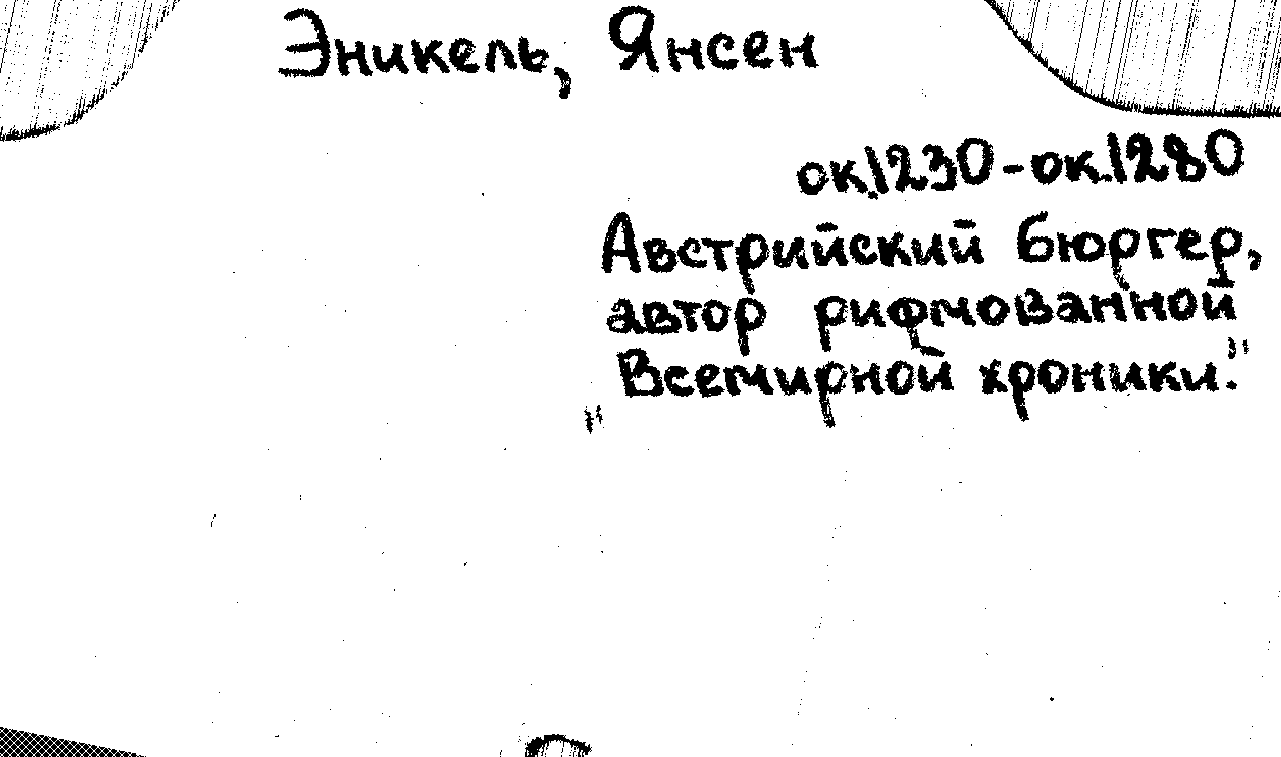 Эникель, Янсен
ок.1230-ок.1280
Австрийский бюргер,
автор рифмованной
"Всемирной хроники."